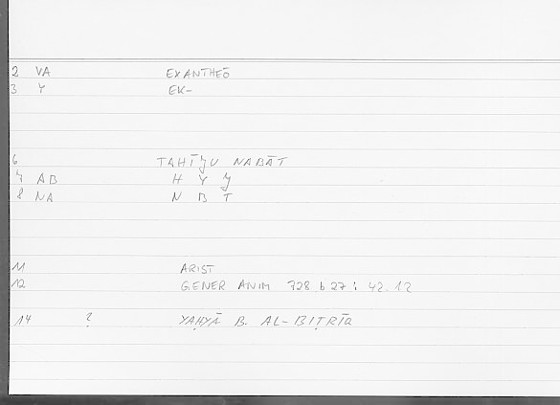 2 VA EXANTHEŌ
3 Y EK-
6 TAHĪǦU NABĀT
7 AB H Y Ǧ
8 NA N B T
11 ARIST
12 GENER ANIM 728 b 27 : 42.12
14 ? YAḤYĀ B. AL-BIṬRĪQ